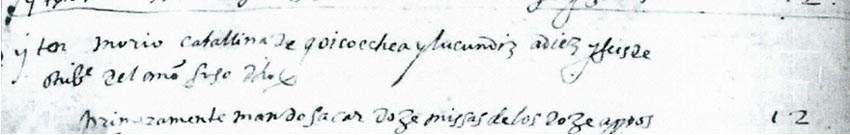 yten murio catallina de goicoechea y lucundiz a diez y seis de
otubᵉ del año suso dho
primeramente mando sacar doze missas de los doze appos 12